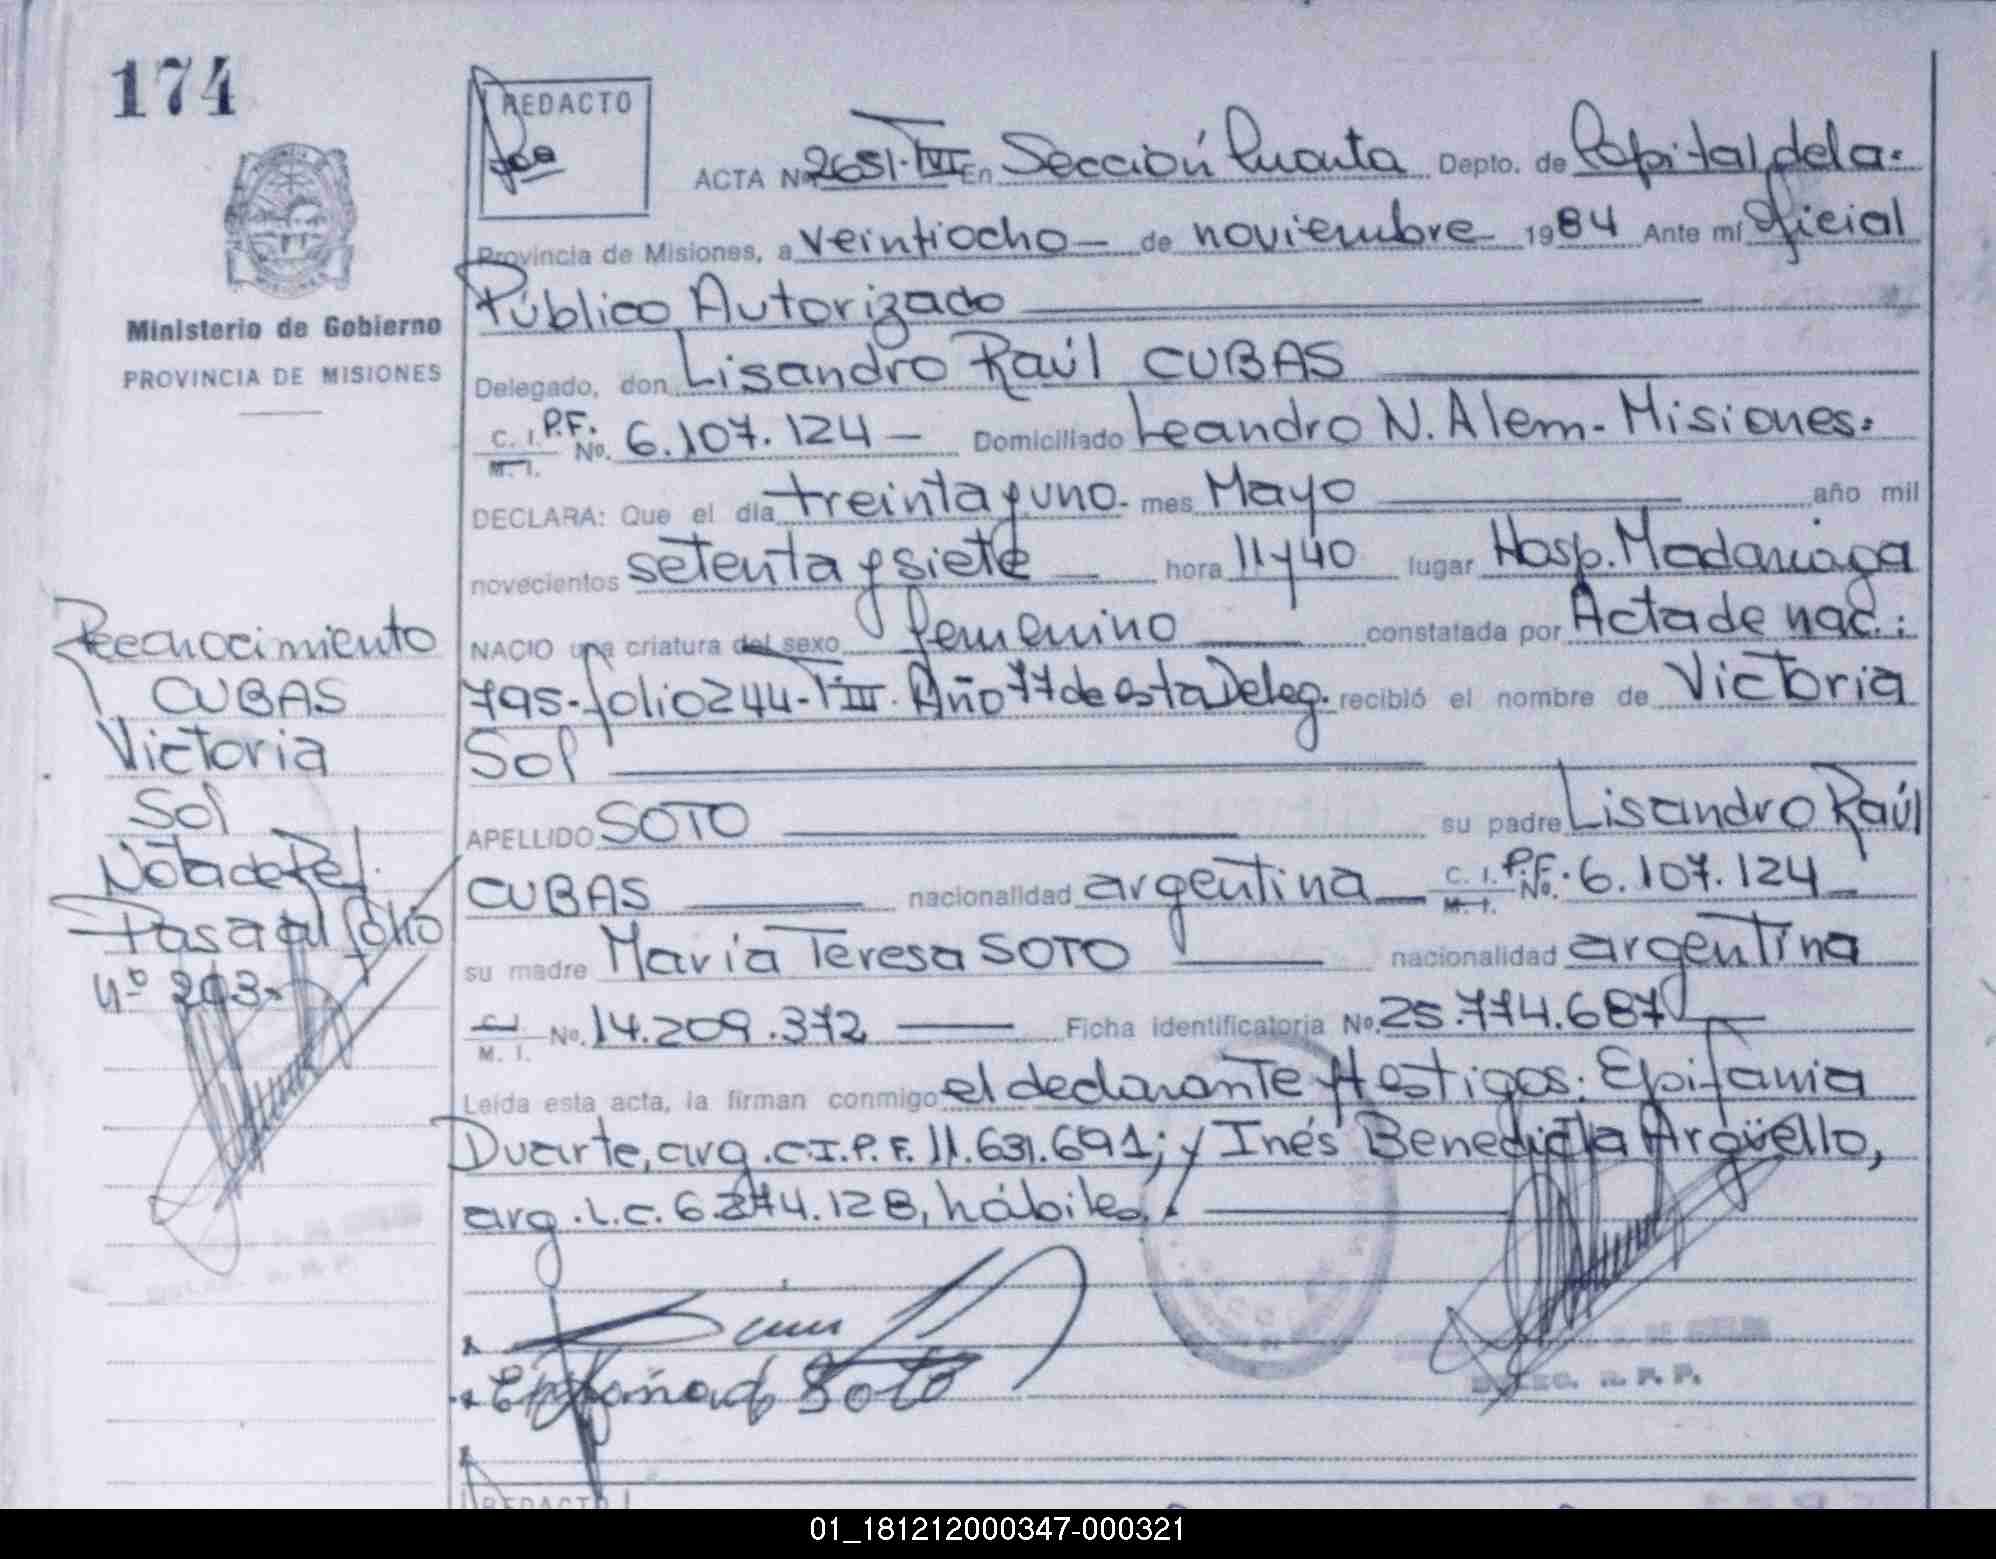 174
REDACTO
ACTA No 2651-TVI En Sección Cuarta Depto. de Capital de la
Provincia de Misiones, a veintiocho de noviembre 1984 Ante mí Oficial
Público Autorizado
Ministerio de Gobierno
PROVINCIA DE MISIONES
Delegado, don Lisandro Raúl CUBAS
C. I. P.F. No. 6.107.124 Domiciliado Leandro N. Alem - Misiones.
M. I.
DECLARA: Que el día treinta y uno mes Mayo año mil
novecientos setenta y siete hora 11 y 40 lugar Hosp. Madariaga
NACIO una criatura del sexo femenino constatada por Acta de nac.:
795-folio 244-TIII. Año 77 de esta Deleg. recibió el nombre de Victoria
Sol
APELLIDO SOTO su padre Lisandro Raúl
CUBAS nacionalidad argentina C. I. P.F. No. 6.107.124
M. I.
su madre María Teresa SOTO nacionalidad argentina
C. I. No. 14.209.372 Ficha identificatoria No. 25.774.687
M. I.
Leída esta acta, la firman conmigo el declarante y testigos: Epifania
Duarte, arg. C.I.P.F. 11.631.691; y Inés Benedicta Argüello,
arg. L.C. 6.274.128, hábiles.
Reconocimiento
CUBAS
Victoria
Sol
Nota de Ref.
Pasa al folio
nº 203.
Soto
R. P. P.
REDACTO
01_181212000347-000321